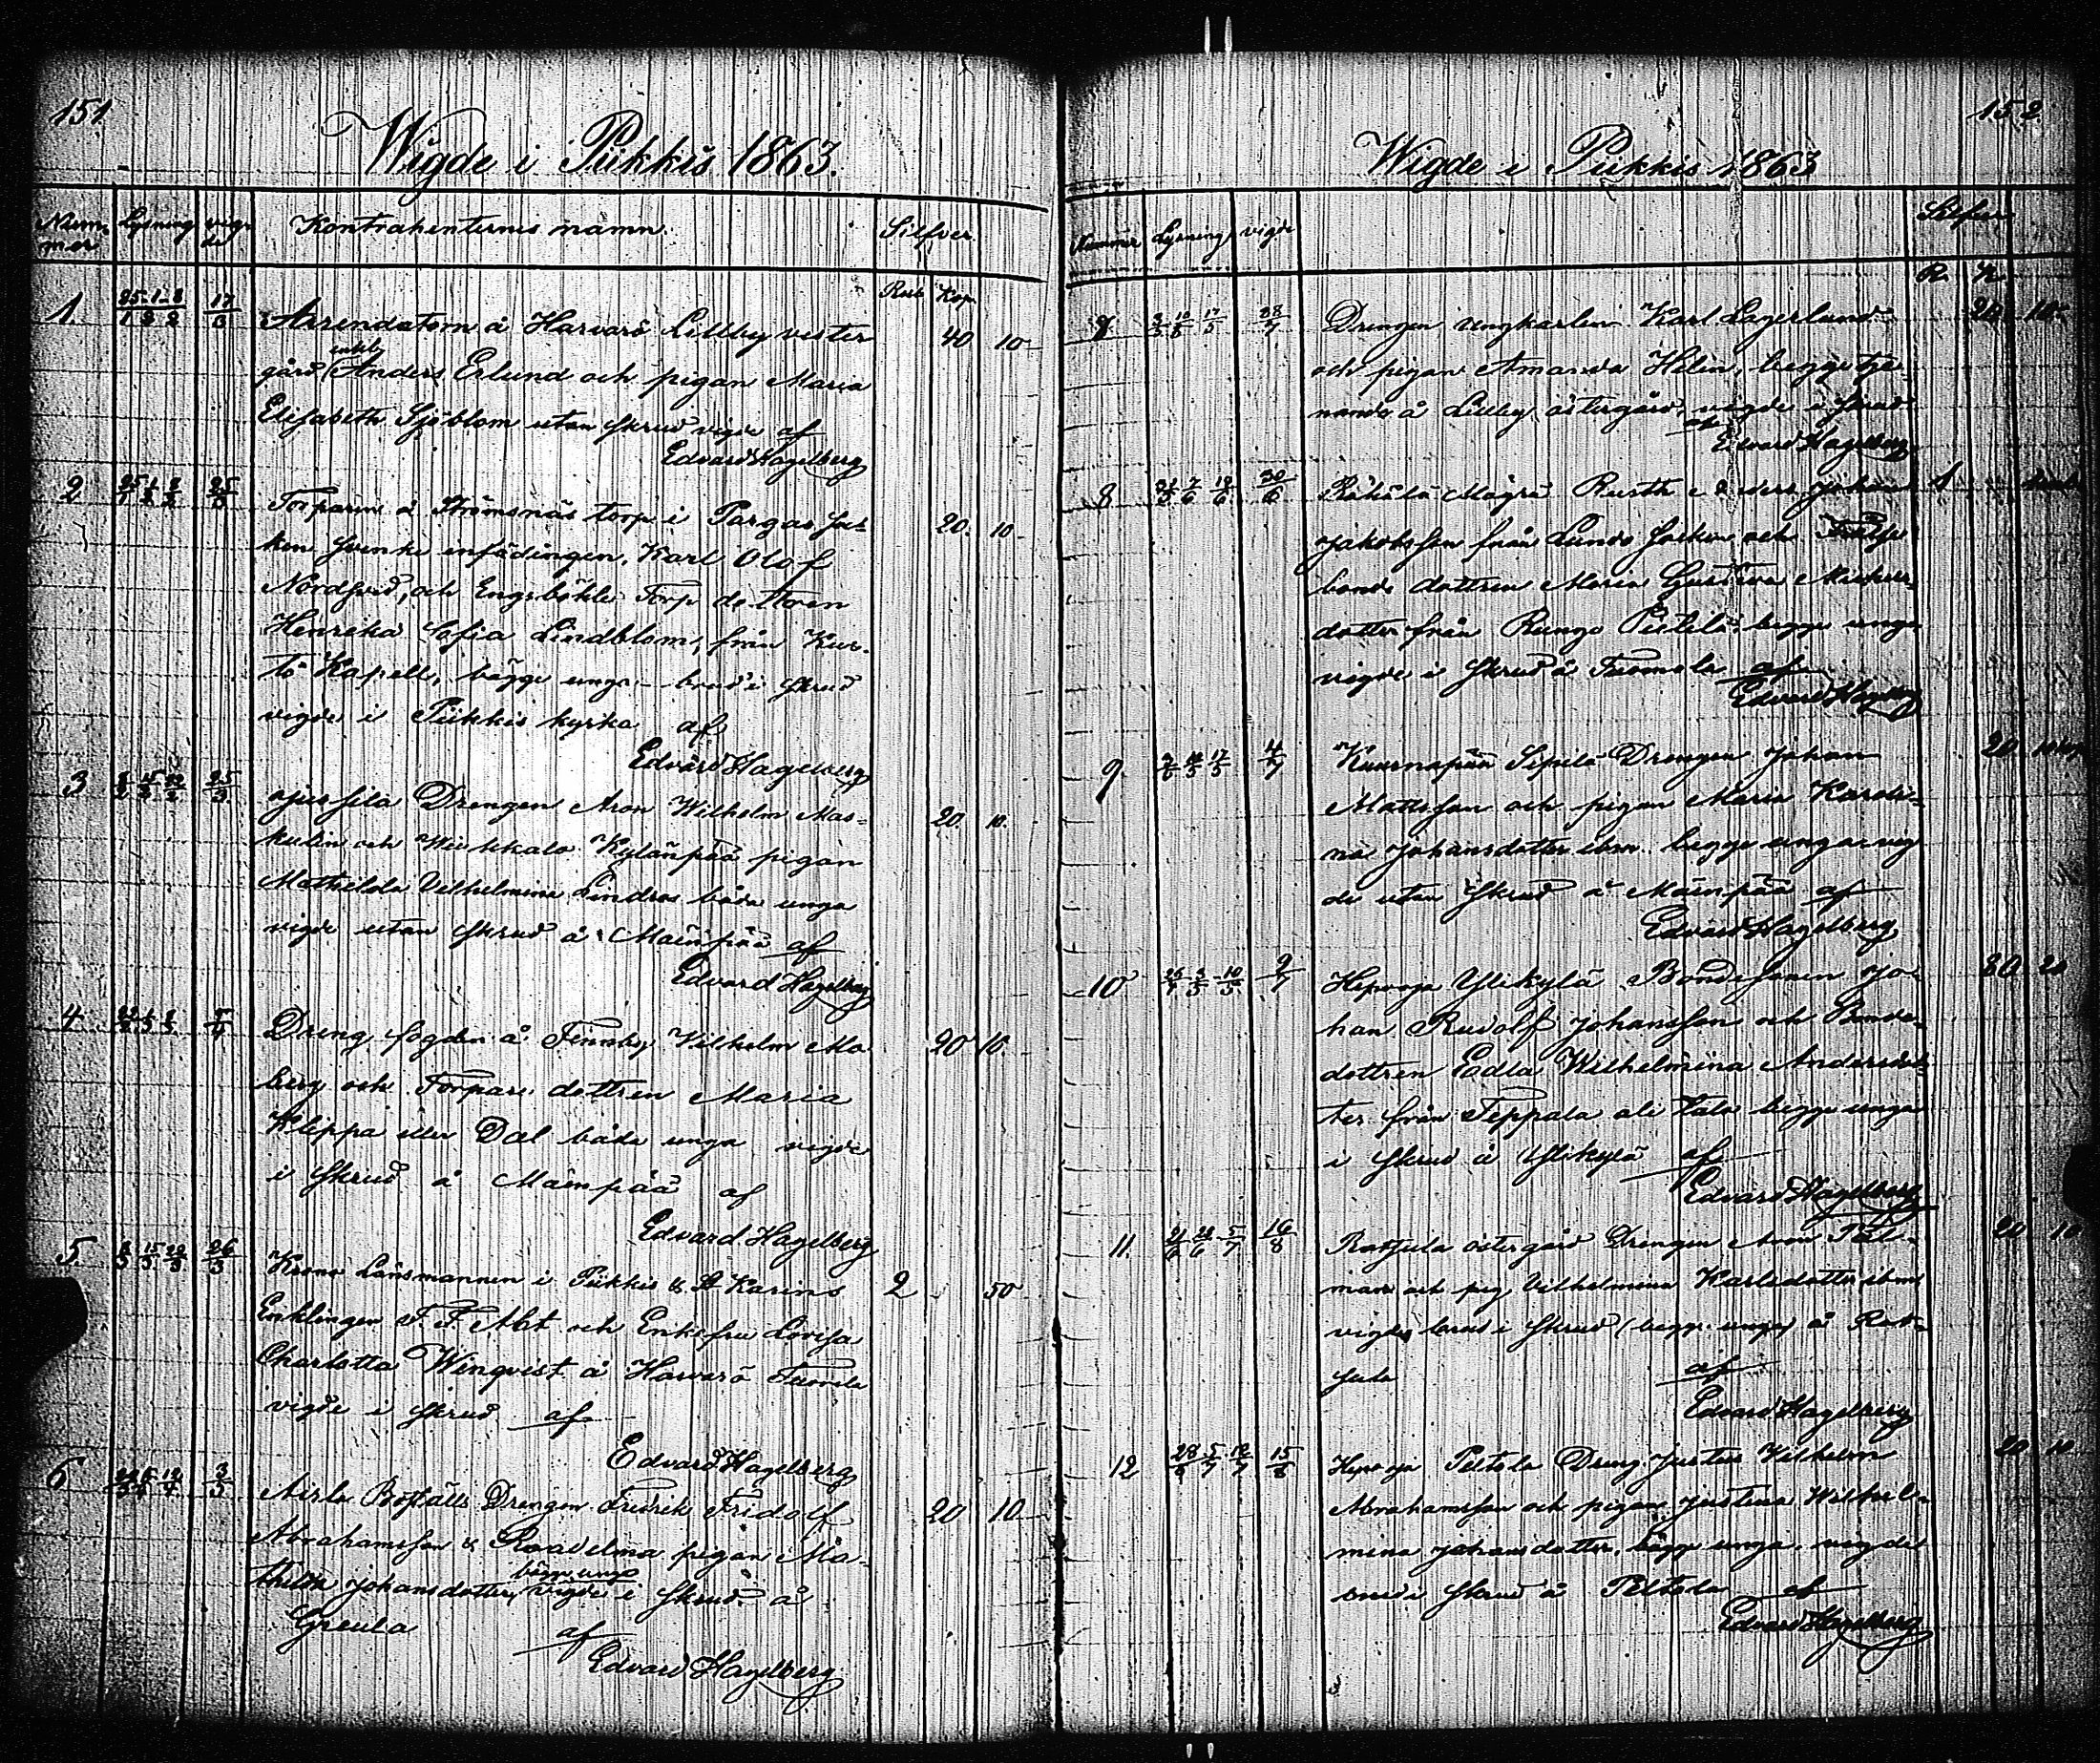 151
Wigde i Piikkis 1863.
Num-mer Lysning vigde Kontrahenternes namn. Silfver.
Rub. Kop.
1. 25/1 1/2 8/2 17/3 Arrendatorn å Harvarö Lillby vester 40 10
enkl.
gård Anders Erlund och pigan Maria
Elisabeth Sjöblom utan skrud vigde af
Edvard Hagelberg
2 25/1 1/2 8/2 25/3 Torparen å Strömsnäs torp i Pargas Soc- 20. 10
ken Svenke infödingen, Karl Olof
och Engsböhle Torp dottren
Henrika Sofia Lindblom, från Kus-
tö Kapell, bägge unga brud i skrud
vigde i Piikkis kyrka af
Edvard Hagelberg
3 8/2 15/2 22/2 25/3 Jussila Drengen Aron Wilhelm Mas- 20. 10.
kulin och Kylänpää pigan
Mathilda Vilhelmina Lindros båda unga
vigde utan skrud å Mäenpää af
Edvard Hagelberg
4. 5/4 Dreng fogden å Finnby Vilhelm Mo- 20 10.
berg och Torpare dottren Maria
Klippa eller Dal båda unga vigde
i skrud å Mäenpää af
Edvard Hagelberg
5. 8/3 15/3 22/3 26/3 Krono Länsmannen i Piikkis & St Karins 2 50
Enklingen F. F. Alet och Enkefru Lovisa
Charlotta Winqvist å Harvarö Tuorla
vigde i skrud af
Edvard Hagelberg
6 3/5 Boställs Drengen Fredrik Fridolf 20 10
Abrahamsson & Raadelma pigan Ma-
bägge unga
thilda Johansdotter, vigde i skrud å
Greula af
Edvard Hagelberg
152
Wigde i Piikkis 1863
Nummer Lysning vigde Silfver
R. K.
7. 3/5 10/5 17/5 28/7 Drengen ungkarlen Karl Lagerlund 20 10
och pigan Amanda Helin, begge tje-
nande å Lillby östergård, vigde i skrud
af Edvard Hagelberg
8 7/6 30/6 Mägrä Rusth Johan 1
Jakobsson från Lundo Socken och
bonde dottren Maria Gustava
dotter från Rungo Piitilä, begge unga
vigde i skrud å Tuomola af
Edvard Hagelberg
9. 17/5 4/7 Kuurnapää Sipilä Drengen Johan 20 10
Mattsson och pigan Maria Karoli-
na Johansdotter ibm. begge unga, vig
de utan skrud å Mäenpää af
Edvard Hagelberg
10 3/5 10/5 9/7 Hepooja Ylikylä Bondesonen Jo- 80 20
han Rudolf Johansson och Bonde-
dottren Edla Wilhelmina Andersdot-
ter från Teppala ali talo begge unga
i skrud å Ylikylä af
Edvard Hagelberg
11. 21/6 28/6 5/7 16/8 Raatula östergård Drengen Aron 20 10
och pig Vilhelmina Karlsdotter ibm
vigde, brud i skrud (begge unga) å
af
Edvard Hagelberg
12 28/6 5/7 12/7 15/8 Hepooja Peltola Dreng Justus Vilhelm 20 10
Abrahamsson och pigan Justina Wilhel-
mina Johansdotter, bägge unga, vigde
brud i skrud å Peltola af
Edvard Hagelberg